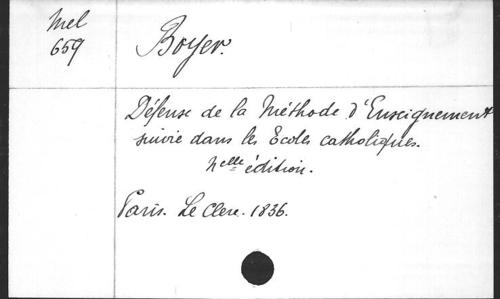 Mel
659
Boyer.
Défense de la Méthode d'Enseignement
suivie dans les Ecoles catholiques.
Nelle édition.
Paris. Le Clere. 1836.